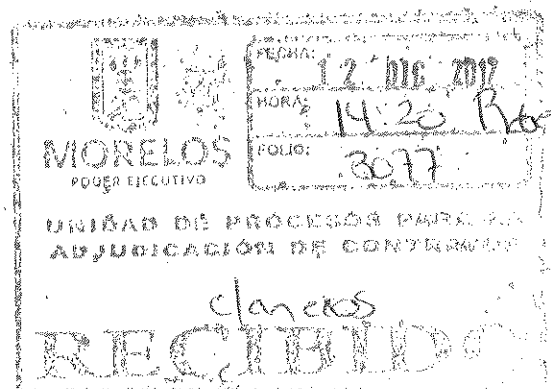 FECHA:
12 DIC 2012
HORA: 14:20
FOLIO: 3077
MORELOS
PODER EJECUTIVO
UNIDAD DE PROCESOS PARA LA
ADJUDICACIÓN DE CONTRATOS
RECIBIDO